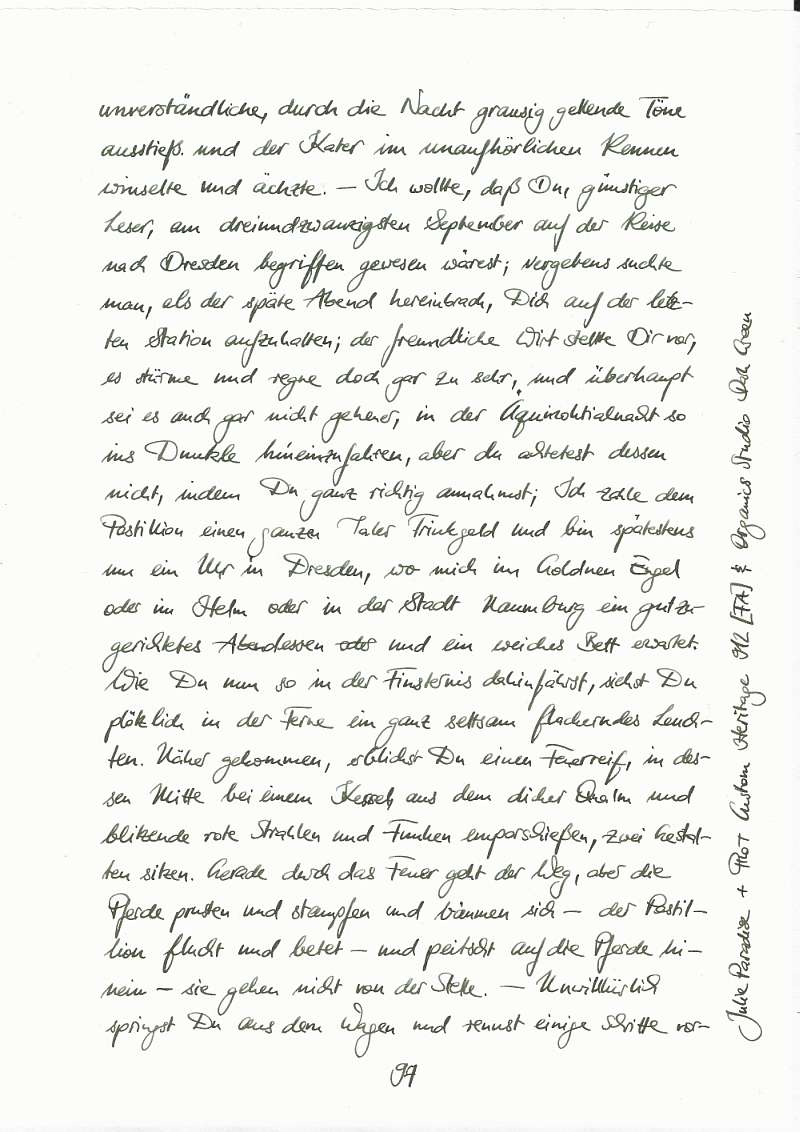 unverständliche, durch die Nacht grausig gellende Töne
ausstieß. und der Kater im unaufhörlichen Rennen
winselte und ächzte. – Ich wollte, daß Du, günstiger
Leser, am dreiundzwanzigsten September auf der Reise
nach Dresden begriffen gewesen wärest; vergebens suchte
man, als der späte Abend hereinbrach, Dich auf der letz-
ten Station aufzuhalten; der freundliche Wirt stellte Dir vor,
es stürme und regne doch gar zu sehr, und überhaupt
sei es auch gar nicht geheuer, in der Äquinoktialnacht so
ins Dunkle hineinzufahren, aber du achtetest dessen
nicht, indem Du ganz richtig annahmst; Ich zahle dem
Postillion einen ganzen Taler Trinkgeld und bin spätestens
um ein Uhr in Dresden, wo mich im Goldnen Engel
oder im Helm oder in der Stadt Naumburg ein gut zu-
gerichtetes Abendessen oder und ein weiches Bett erwartet.
Wie Du nun so in der Finsternis dahinfährst, siehst Du
plötzlich in der Ferne ein ganz seltsam flackerndes Leuch-
ten. Näher gekommen, erblickst Du einen Feuerreif, in des-
sen Mitte bei einem Kessel, aus dem dicker Qualm und
blitzende rote Strahlen und Funken emporschießen, zwei Gestal-
ten sitzen. Gerade durch das Feuer geht der Weg, aber die
Pferde prusten und stampfen und bäumen sich – der Postil-
lion flucht und betet – und peitscht auf die Pferde hi-
nein – sie gehen nicht von der Stelle. – Unwillkürlich
springst Du aus dem Wagen und rennst einige Schritte vor-
99
Julie Paradise + Pilot Custom Heritage 912 [FA] & Organics Studio Green